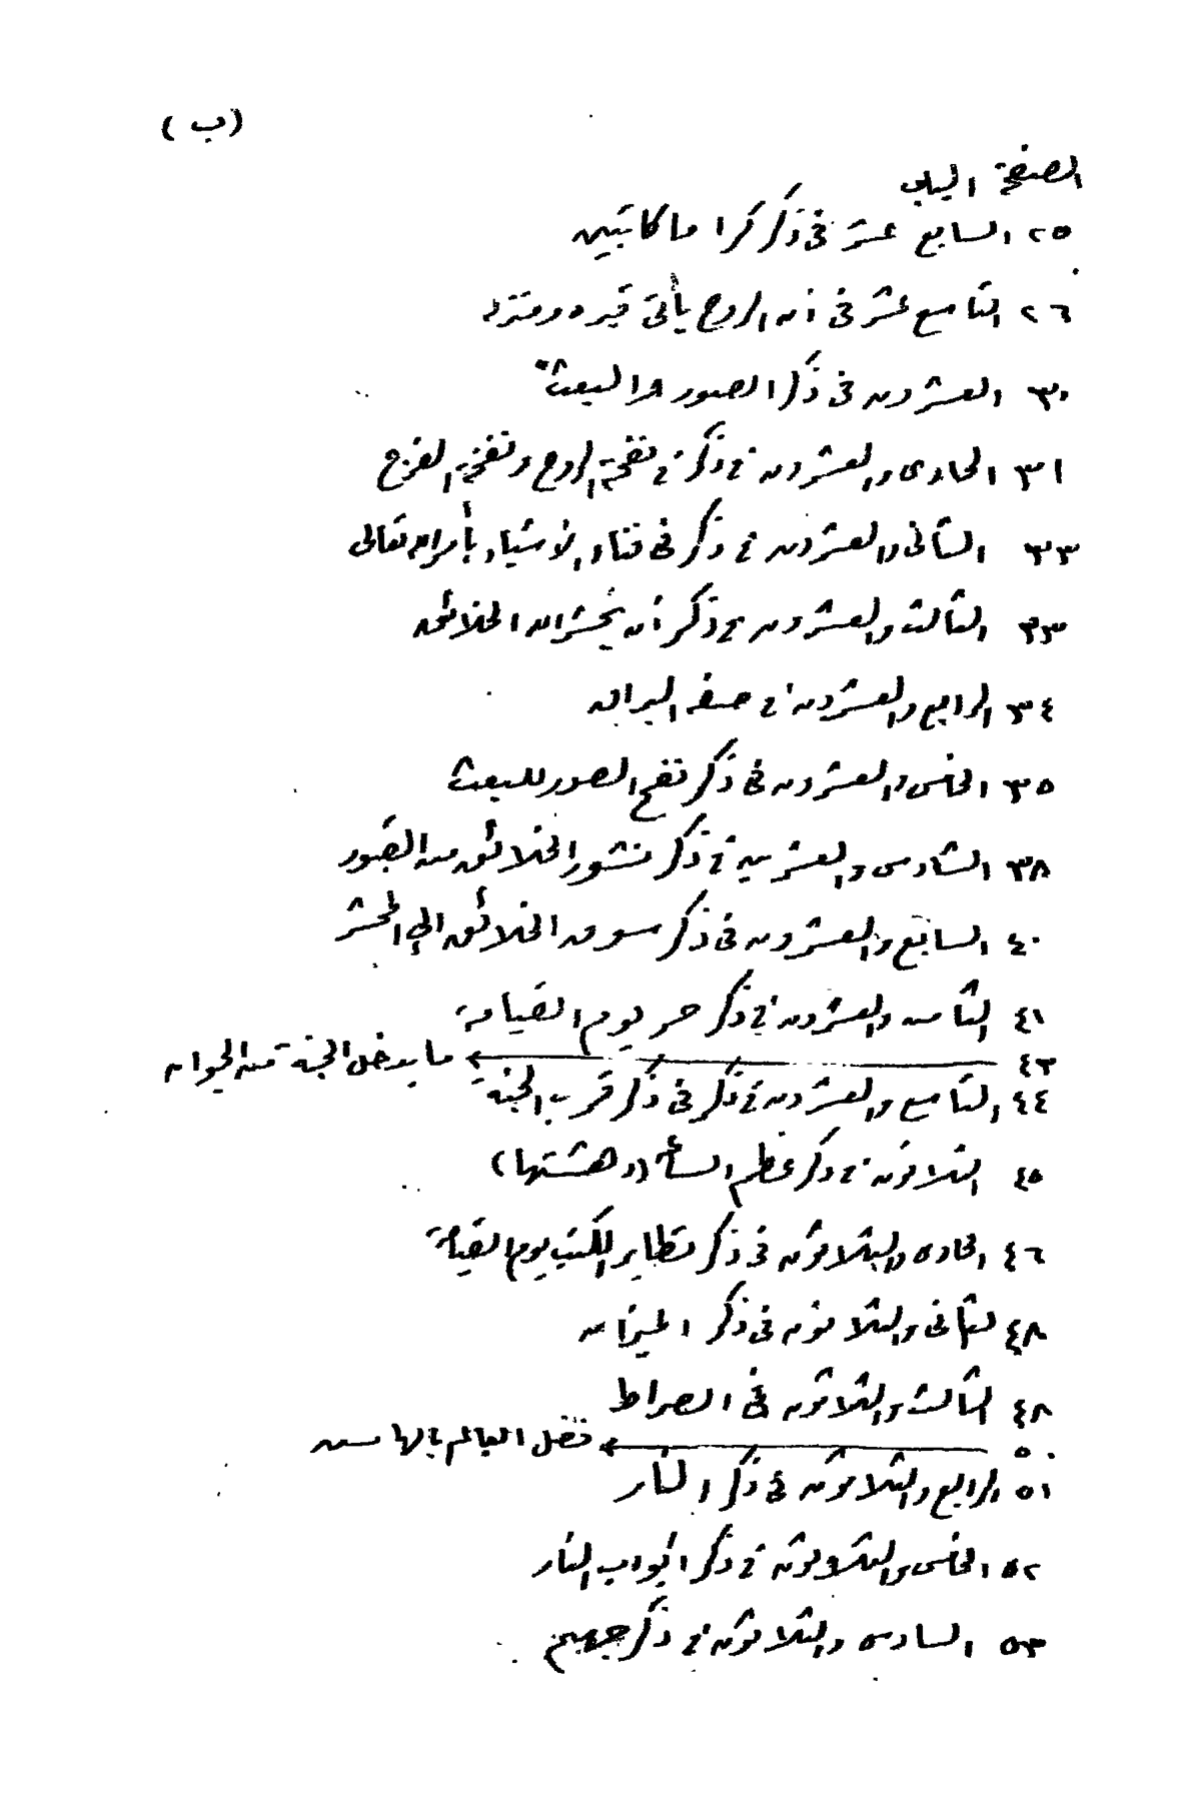 (ب)
الصفحة الباب
٢٥ السابع عشر فى ذكر كراما كاتبين
٢٦ التاسع عشر فى أن الروح يأتى قبره ومنزله
٣٠ العشرون فى ذكر الصور والبعث
٣١ الحادى والعشرون فى ذكر فى نفخة الروح ونفخة الفزع
٣٣ الثانى والعشرون فى ذكر فى فناء الأشياء بأمر الله تعالى
٣٣ الثالث والعشرون فى ذكر أن يحشر الله الخلائق
٣٤ الرابع والعشرون فى صفة البراق
٣٥ الخامس والعشرون فى ذكر نفخ الصور للبعث
٣٨ السادس والعشرين فى ذكر منشور الخلائق من القبور
٤٠ السابع والعشرون فى ذكر سوق الخلائق إلى المحشر
٤١ الثامن والعشرون فى ذكر حر يوم القيامة
٤٣ ما يدخل الجنة من الحيوان
٤٤ التاسع والعشرون فى ذكر فى ذكر قرب الجنة
٤٥ الثلاثون فى ذكر عظم (دهشتها)
٤٦ الحادى والثلاثون فى ذكر تطاير الكتب يوم القيامة
٤٨ الثانى والثلاثون فى ذكر الميزان
٤٨ الثالث والثلاثون فى الصراط
٥٠ فضل العالم بالهامش
٥١ الرابع والثلاثون فى ذكر النار
٥٢ الخامس والثلاثون فى ذكر أبواب النار
٥٣ السادس والثلاثون فى ذكر جهنم